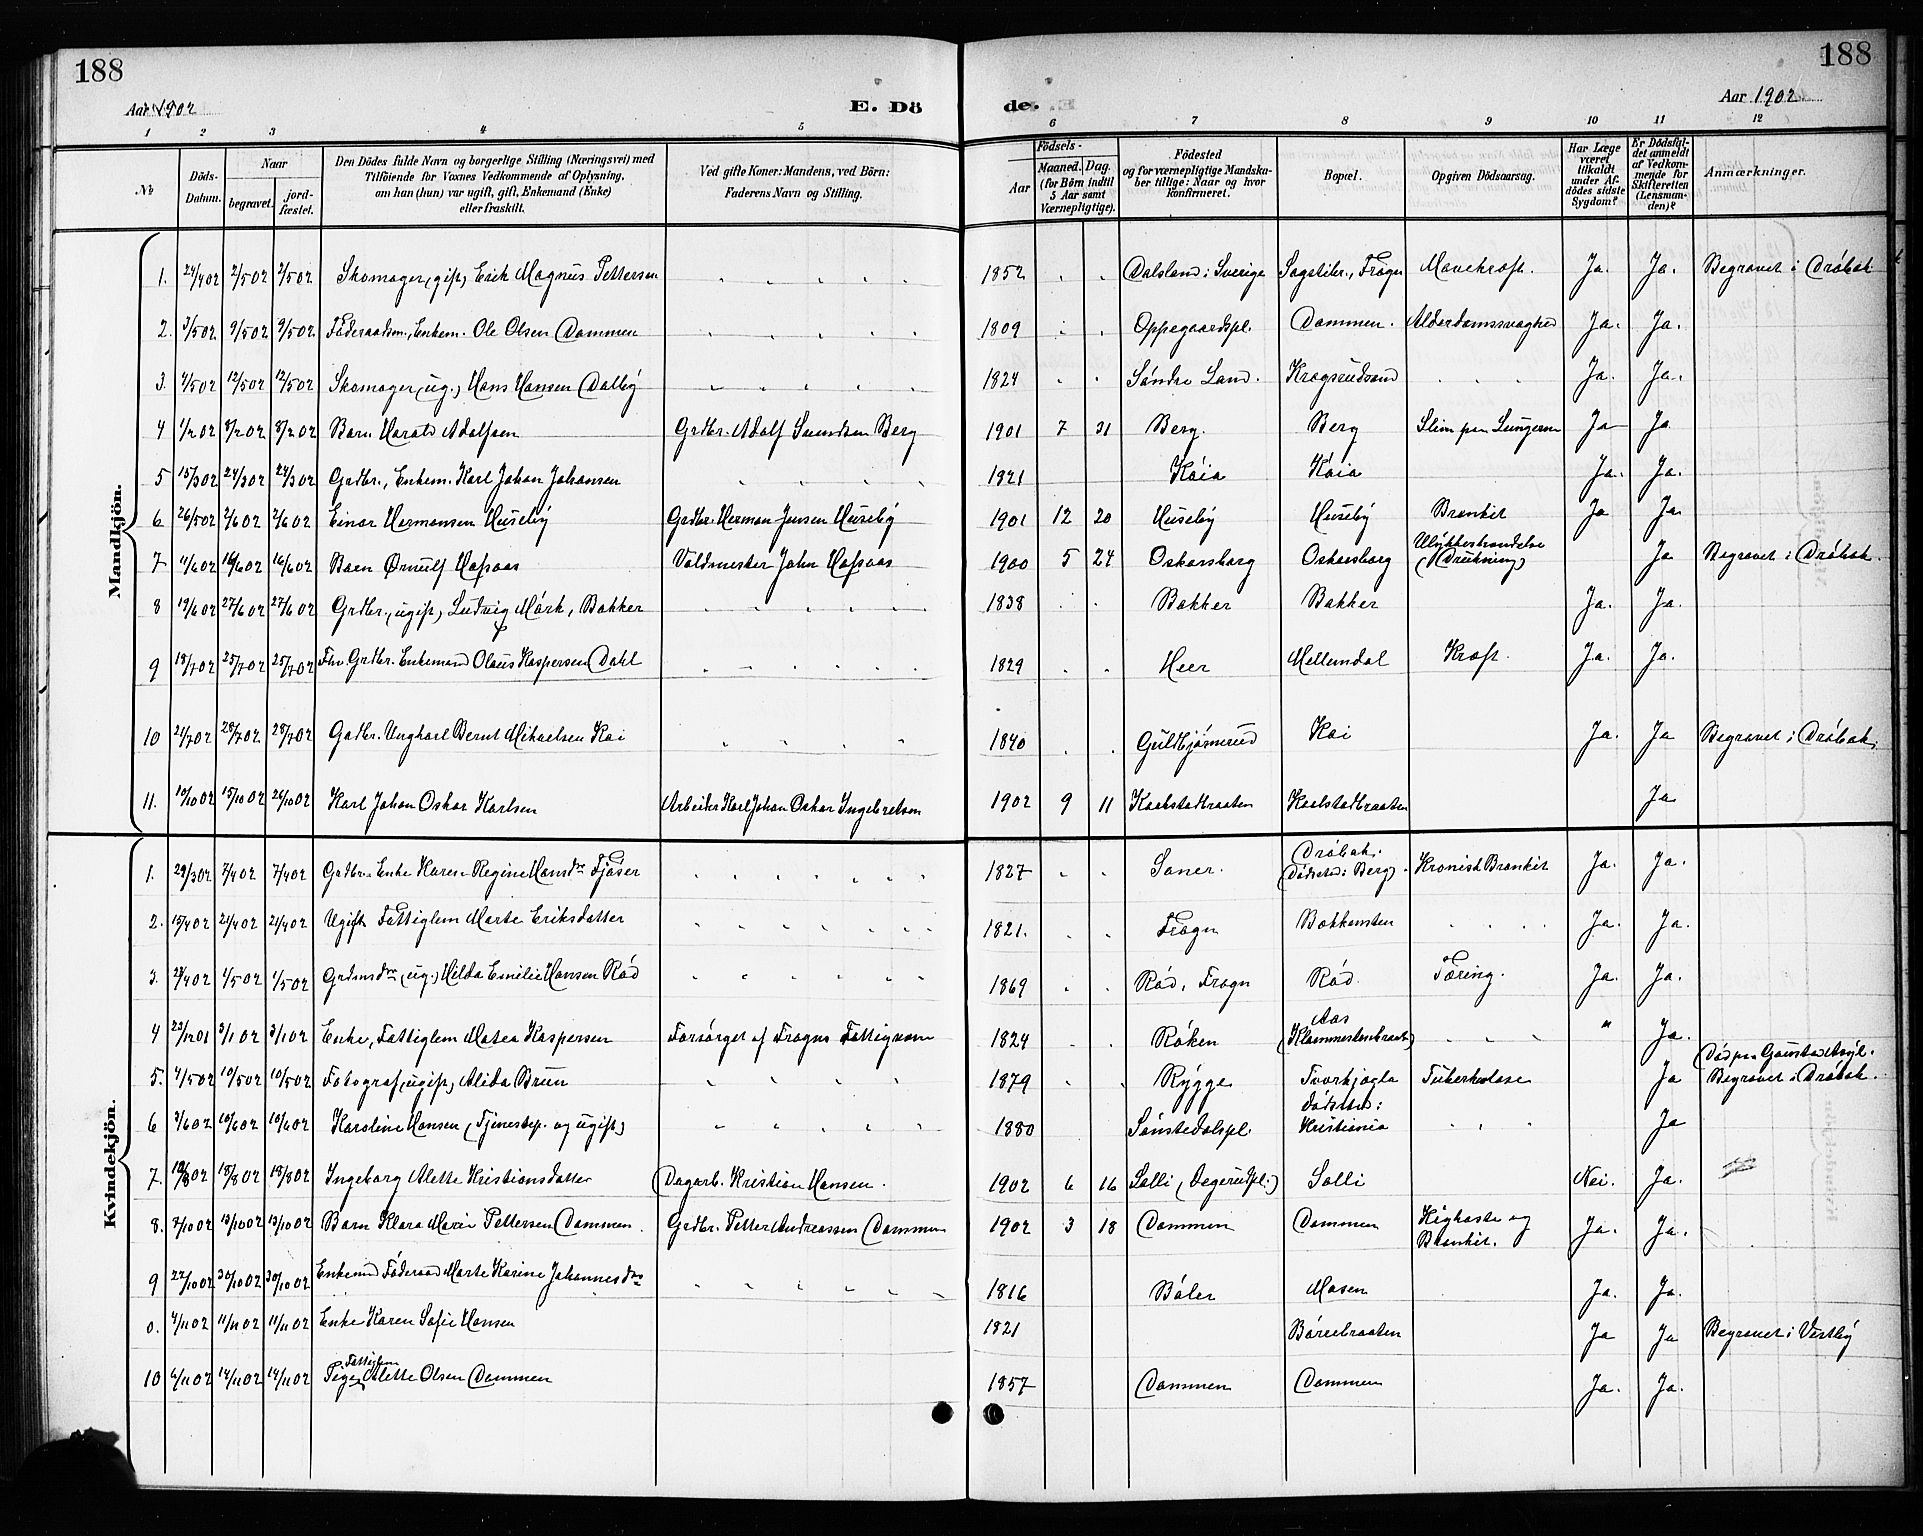 188
188
Aar 1902
E. Dö
de.
Aar 1902
1 2 3 4 5 6 7 8 9 10 11 12
No
Döds-Datum.
Naar
begravet.
jord-fæstet.
Den Dödes fulde Navn og borgerlige Stilling (Næringsvei) med
Tilföiende for Voxnes Vedkommende af Oplysning,
om han (hun) var ugift, gift, Enkemand (Enke)
eller fraskilt.
Ved gifte Koner: Mandens, ved Börn:
Faderens Navn og Stilling.
Födsels-
Aar
Maaned. Dag.
(for Börn indtil
5 Aar samt
Værnepligtige).
Födested
og for værnepligtige Mandska-
ber tillige: Naar og hvor
konfirmeret.
Bopæl.
Opgiven Dödsaarsag.
Har Læge
været
tilkaldt
under Af-
dödes sidste
Sygdom?
Er Dödsfal-
det anmeldt
af Vedkom-
mende for
Skifteretten
(Lensman-
den)?
Anmærkninger.
Mandkjön.
1. 24/4 02 2/5 02 2/5 02 Skomager, gift, Erik Magnus Pettersen 1852 Dalsland i Sverige Sagstibr., Frogn Mavekræft. Ja. Ja. Begravet i Dröbak
2. 3/5 02 9/5 02 9/5 02 Föderaadsm., Enkem. Ole Olsen Dammen 1809 Oppegaardspl. Dammen. Alderdomssvaghed Ja. Ja.
3. 4/5 02 12/5 02 12/5 02 Skomager, (ug.) Hans Hansen Dalby 1824 Söndre Land. Krogsrudsand Ja. Ja.
4 1/2 02 8/2 02 8/2 02 Barn Harald Adolfsen Grdbr. Adolf Svendsen Berg 1901 7 31 Berg. Berg Slim paa Lungerne Ja Ja
5 15/3 02 24/3 02 24/3 02 Grdbr., Enkem. Karl Johan Johansen 1821 Kaia Kaia Ja. Ja.
6 26/5 02 2/6 02 2/6 02 Einar Hermansen Huseby Grdbr. Herman Jensen Huseby 1901 12 20 Huseby Huseby Bronkit Ja Ja
7 11/6 02 16/6 02 16/6 02 Barn Ørnulf Hafsaas Voldmester John Hafsaas 1900 5 24 Oskarsborg Oskarsborg Ulykkeshændelse (Drukning) Ja Begravet i Dröbak.
8 19/6 02 27/6 02 27/6 02 Grdbr., ugift, Ludvig Mörk, Bakker 1838 Bakker Bakker Ja. Ja.
9 18/7 02 25/7 02 25/7 02 Fhv. Grdbr. Enkemand Olaus Kaspersen Dahl 1829 Heer Mellumdal Kræft. Ja. Ja.
10 21/7 02 28/7 02 28/7 02 Gdbr. Ungkarl Bernt Mikaelsen Kai 1840 Kai Ja. Ja Begravet i Dröbak.
11. 10/10 02 15/10 02 26/10 02 Karl Johan Oskar Karlsen Arbeider Karl Johan Oskar Ingebretsen 1902 9 11 Kaelstadbraaten Kaelstadbraaten Ja
Kvindekjön.
1. 29/3 02 7/4 02 7/4 02 Grdbr. Enke Karen Regine Hansdtr. Fjöser 1827 Saner. Dröbak. (Dödsted: Berg). Kronisk Bronkit Ja. Ja.
2. 15/4 02 21/4 02 21/4 02 Ugift Fattiglem Marte Eriksdatter 1821. Frogn Bakkensten Ja. Ja.
3. 24/4 02 1/5 02 1/5 02 Grdmsdtr. (ug.) Helda Emilie Hansen Röd 1869 Röd, Frogn Röd. Tæring. Ja. Ja.
4 23/12 01 3/1 02 3/1 02 Enke, Fattiglem Matea Kaspersen Forsörget af Frogns Fattigvæsen 1824 Röken Aas " Ja.
5. 4/5 02 10/5 02 10/5 02 Fotograf, ugift, Alida Brun 1879 Rygge Tvorkjøgla Tuberkulose Ja Död paa Gaustad Asyl. Begravet i Dröbak.
6 3/6 02 10/6 02 10/6 02 Karoline Hansen (Tjenestep. og ugift) 1880 Sönstedalspl. dödsted: Kristiania Ja
7. 12/8 02 18/8 02 18/8 02 Ingeborg Alette Kristiansdatter Dagarb. Kristian Hansen. 1902 6 16 Solli (Degerudpl.) Solli Nei. Ja.
8. 7/10 02 13/10 02 13/10 02 Barn Klara Marie Pettersen Dammen. Grdbr. Petter Andreassen Dammen 1902 3 18 Dammen Dammen Kighoste og Bronkit. Ja. Ja.
9 22/10 02 30/10 02 30/10 02 Enkemd Föderaad Marte Karine Johannesdtr 1816 Böler Mosen Ja. Ja.
0. 4/11 02 11/11 02 11/11 02 Enke Karen Sofie Hansen 1821 Ja Ja Begravet i Vestby
10 6/11 02 14/11 02 14/11 02 Pige Fattiglem Alette Olsen Dammen 1857 Dammen Dammen Ja. Ja.